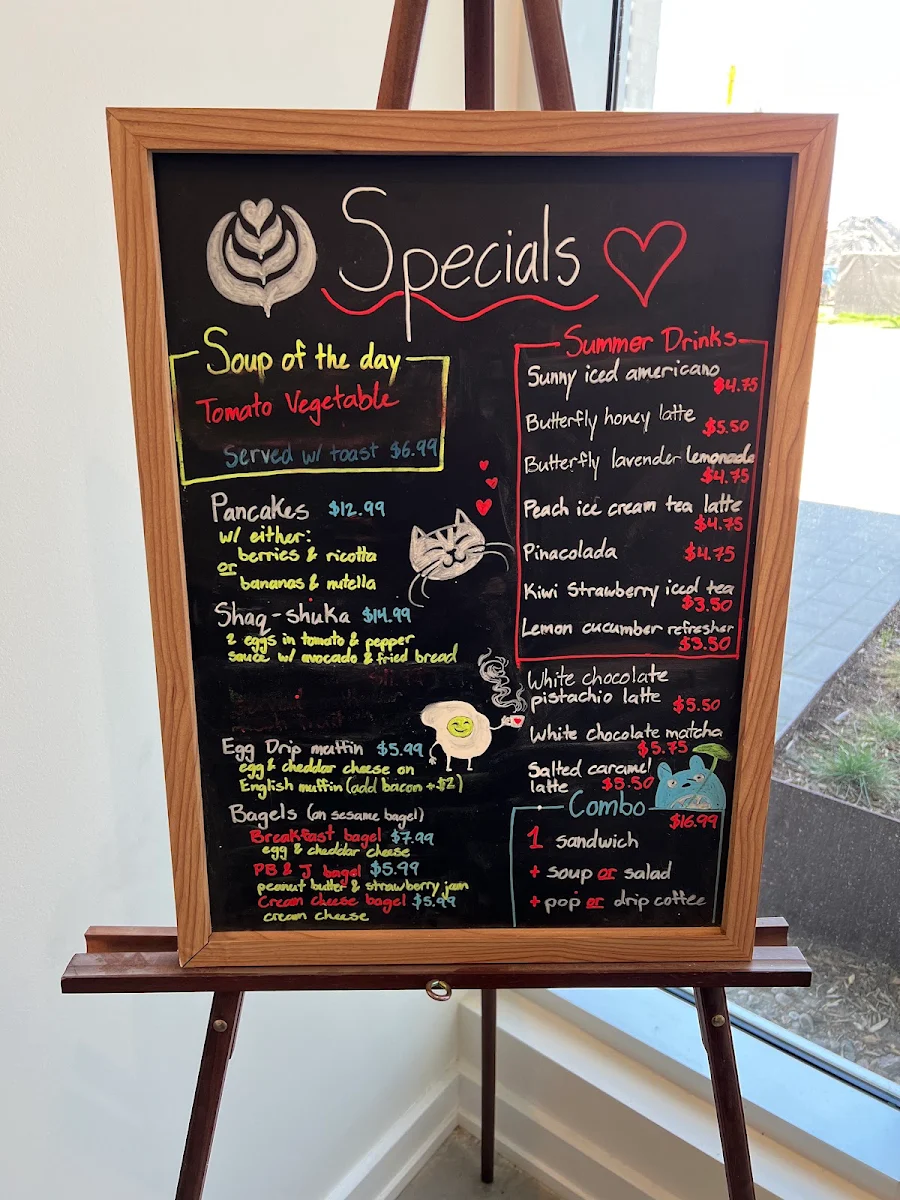 Specials
Soup of the day
Tomato Vegetable
Served w/ toast $6.99
Pancakes $12.99
w/ either:
berries & ricotta
or
bananas & nutella
Shaq-shuka $14.99
2 eggs in tomato & pepper
sauce w/ avocado & fried bread
Egg Drip muffin $5.99
egg & cheddar cheese on
English muffin (add bacon +$2)
Bagels (on sesame bagel)
Breakfast bagel $7.99
egg & cheddar cheese
PB & J bagel $5.99
peanut butter & strawberry jam
Cream cheese bagel $5.99
cream cheese
Summer Drinks
Sunny iced americano
$4.75
Butterfly honey latte $5.50
Butterfly lavender lemonade
$4.75
Peach ice cream tea latte
$4.75
Pinacolada $4.75
Kiwi Strawberry iced tea
$3.50
Lemon cucumber refresher
$3.50
White chocolate
pistachio latte $5.50
White chocolate matcha
$5.75
Salted caramel
latte $5.50
Combo
$16.99
1 sandwich
+ soup or salad
+ pop or drip coffee